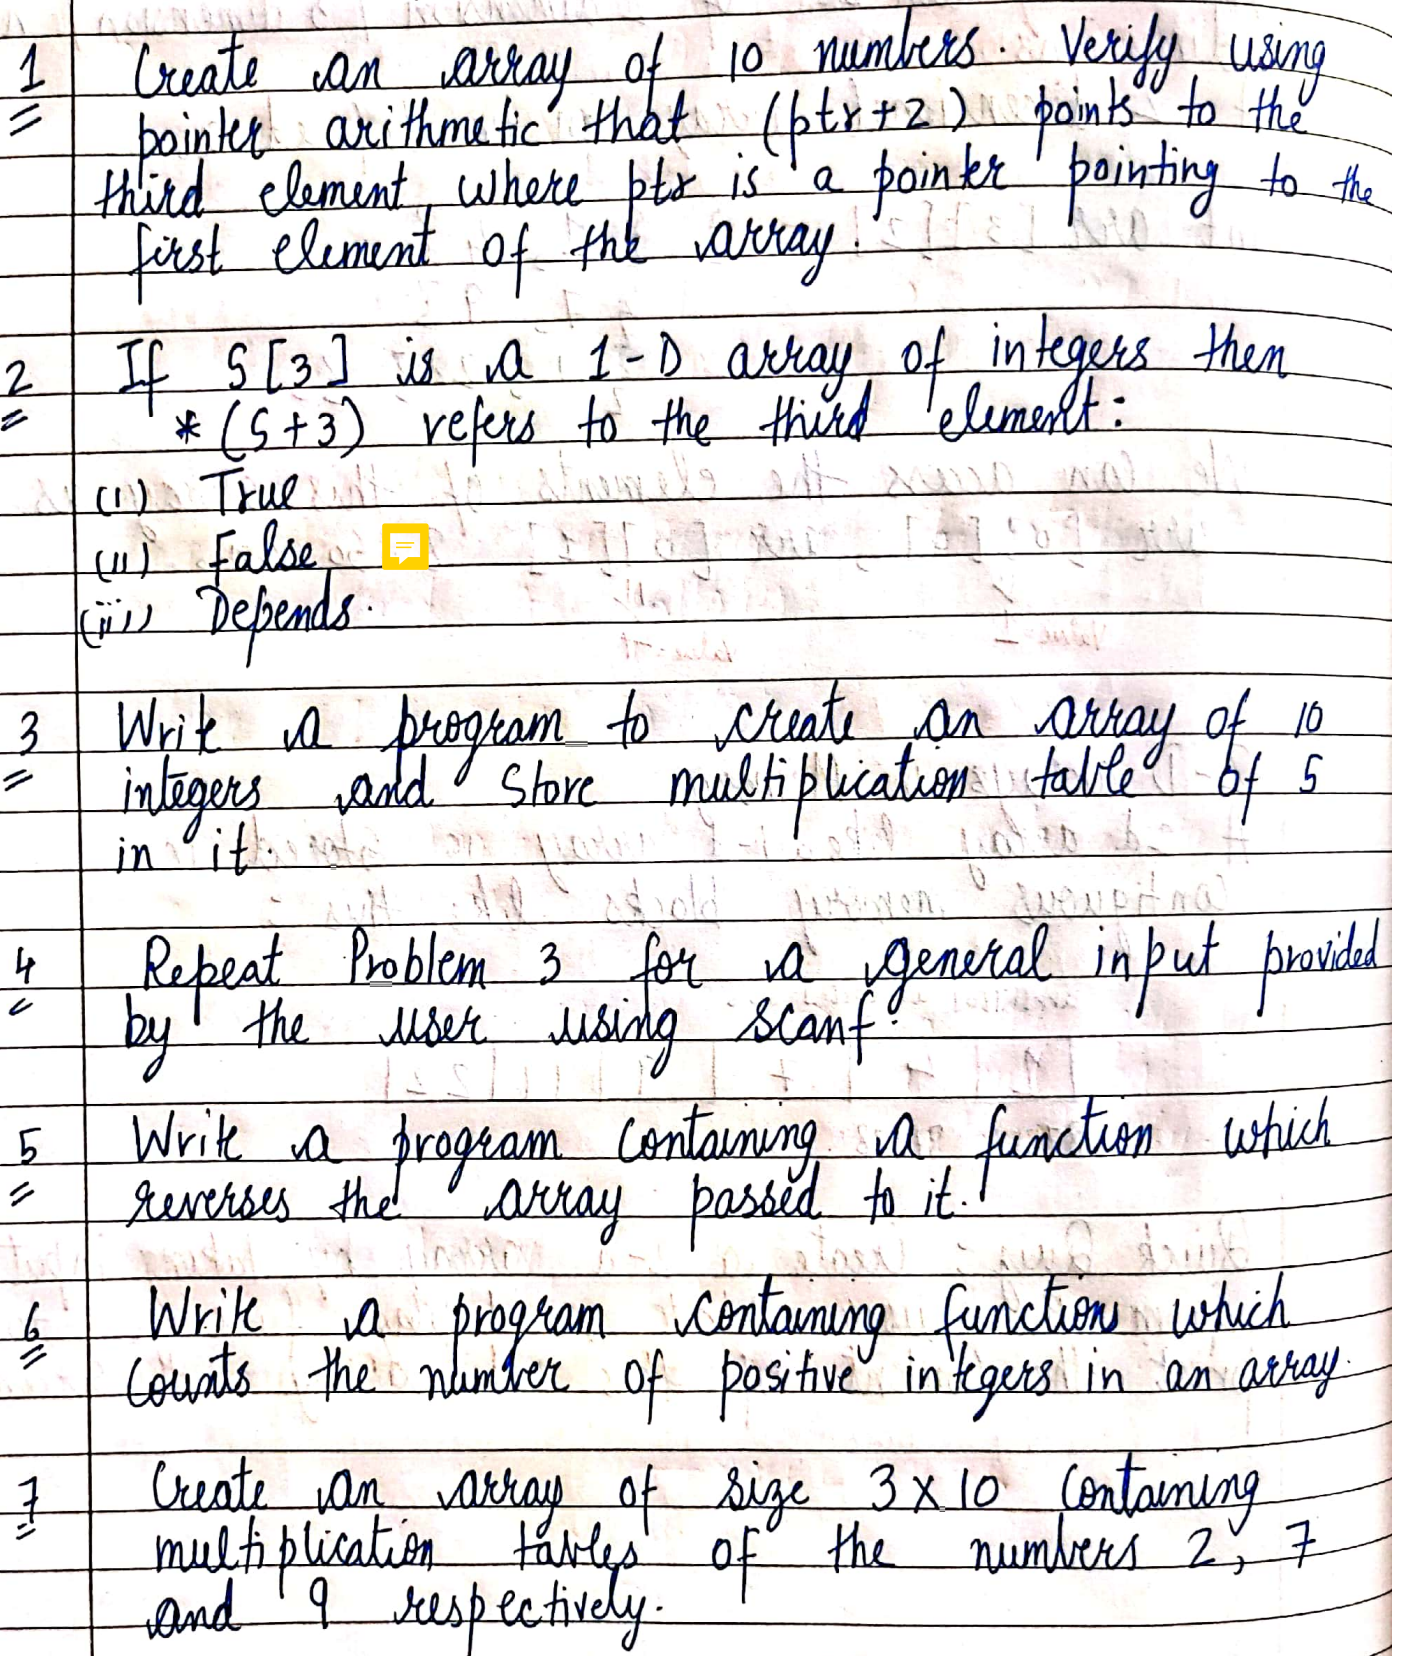 1 Create an array of 10 numbers. Verify using
pointer arithmetic that (ptr+2) points to the
third element, where ptr is a pointer pointing to the
first element of the array.
2 If S[3] is a 1-D array of integers then
*(S+3) refers to the third element:
(i) True
(ii) False
(iii) Depends.
3 Write a program to create an array of 10
integers and store multiplication table of 5
in it.
4 Repeat Problem 3 for a general input provided
by the user using scanf.
5 Write a program containing a function which
reverses the array passed to it.
6 Write a program containing functions which
counts the number of positive integers in an array.
7 Create an array of size 3 x 10 containing
multiplication tables of the numbers 2, 7
and 9 respectively.